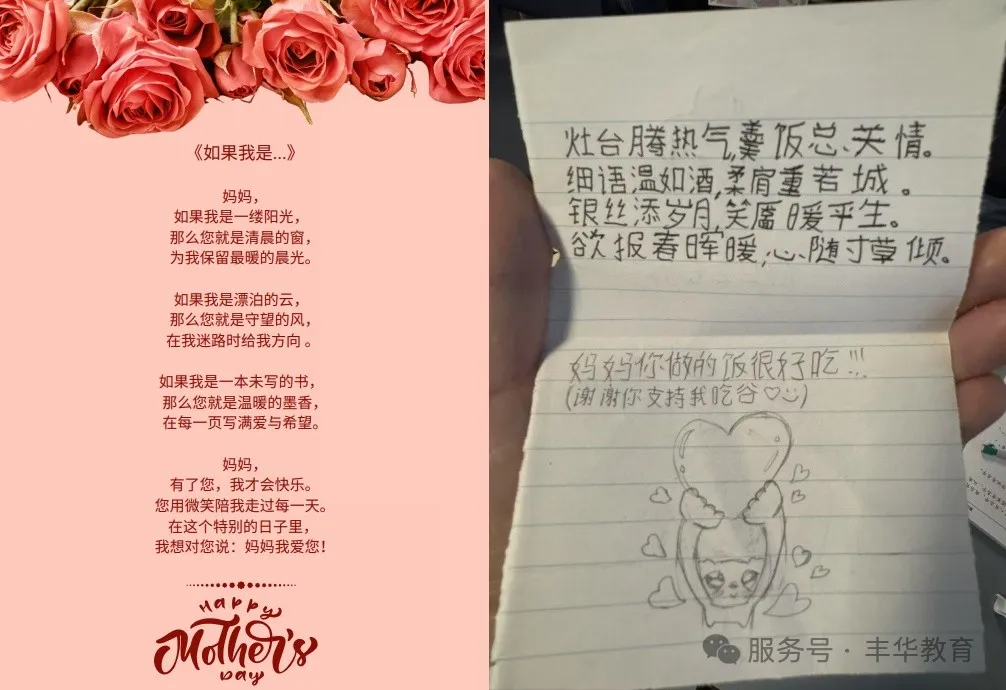 《如果我是...》
妈妈，
如果我是一缕阳光，
那么您就是清晨的窗，
为我保留最暖的晨光。
如果我是漂泊的云，
那么您就是守望的风，
在我迷路时给我方向。
如果我是一本未写的书，
那么您就是温暖的墨香，
在每一页写满爱与希望。
妈妈，
有了您，我才会快乐。
您用微笑陪我走过每一天。
在这个特别的日子里，
我想对您说：妈妈我爱您！
Happy
Mother's
Day
灶台腾热气，羹饭总关情。
细语温如酒，柔肩重若城。
银丝添岁月，笑靥暖平生。
欲报春晖暖，心随寸草倾。
妈妈你做的饭很好吃!!!
(谢谢你支持我吃谷♡)
服务号·丰华教育